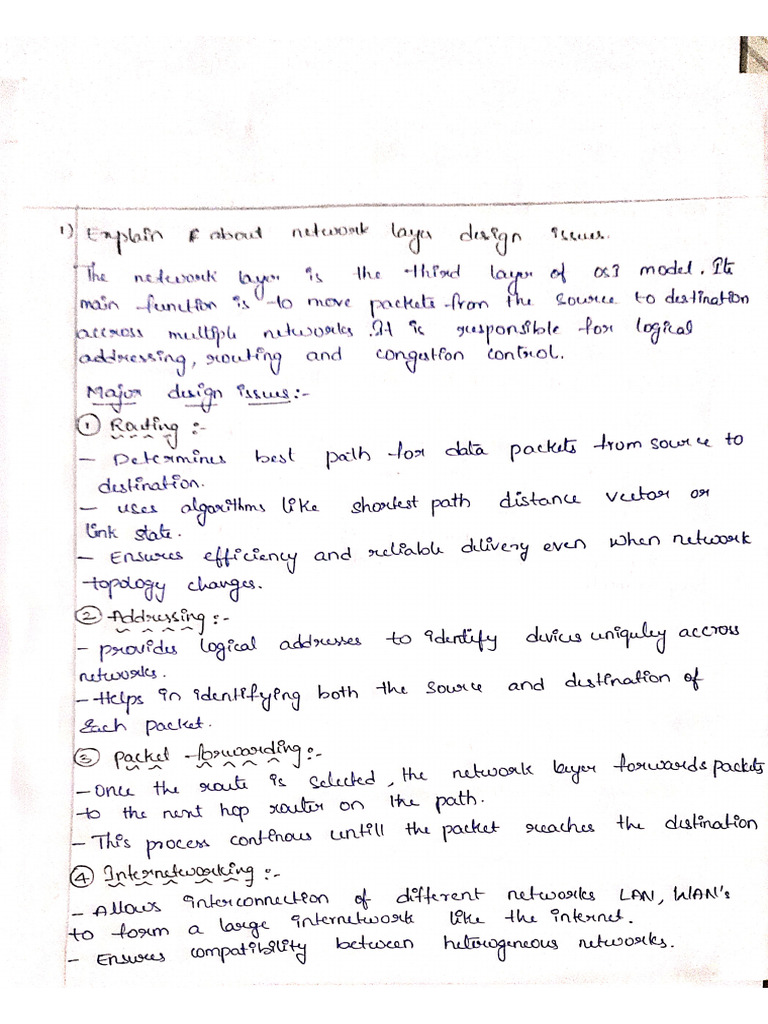 1) Explain & about network layer design issues.
The network layer is the third layer of OSI model. Its
main function is to move packets from the source to destination
accross multiple networks. It is responsible for logical
addressing, routing and congestion control.
Major design issues:-
① Routing :-
- Determines best path for data packets from source to
destination.
- uses algorithms like shortest path distance vector or
link state.
- Ensures efficiency and reliable delivery even when network
topology changes.
② Addressing :-
- provides logical addresses to identify devices uniquley accross
networks.
- Helps in identifying both the source and destination of
Each packet.
③ Packet forwarding :-
- Once the route is selected, the network layer forwards packets
to the next hop router on the path.
- This process continous untill the packet reaches the distination
④ Internetworking :-
- Allows interconnection of different networks LAN, WAN's
to form a large internetwork like the internet.
- Ensures compatibility between heterogeneous networks.